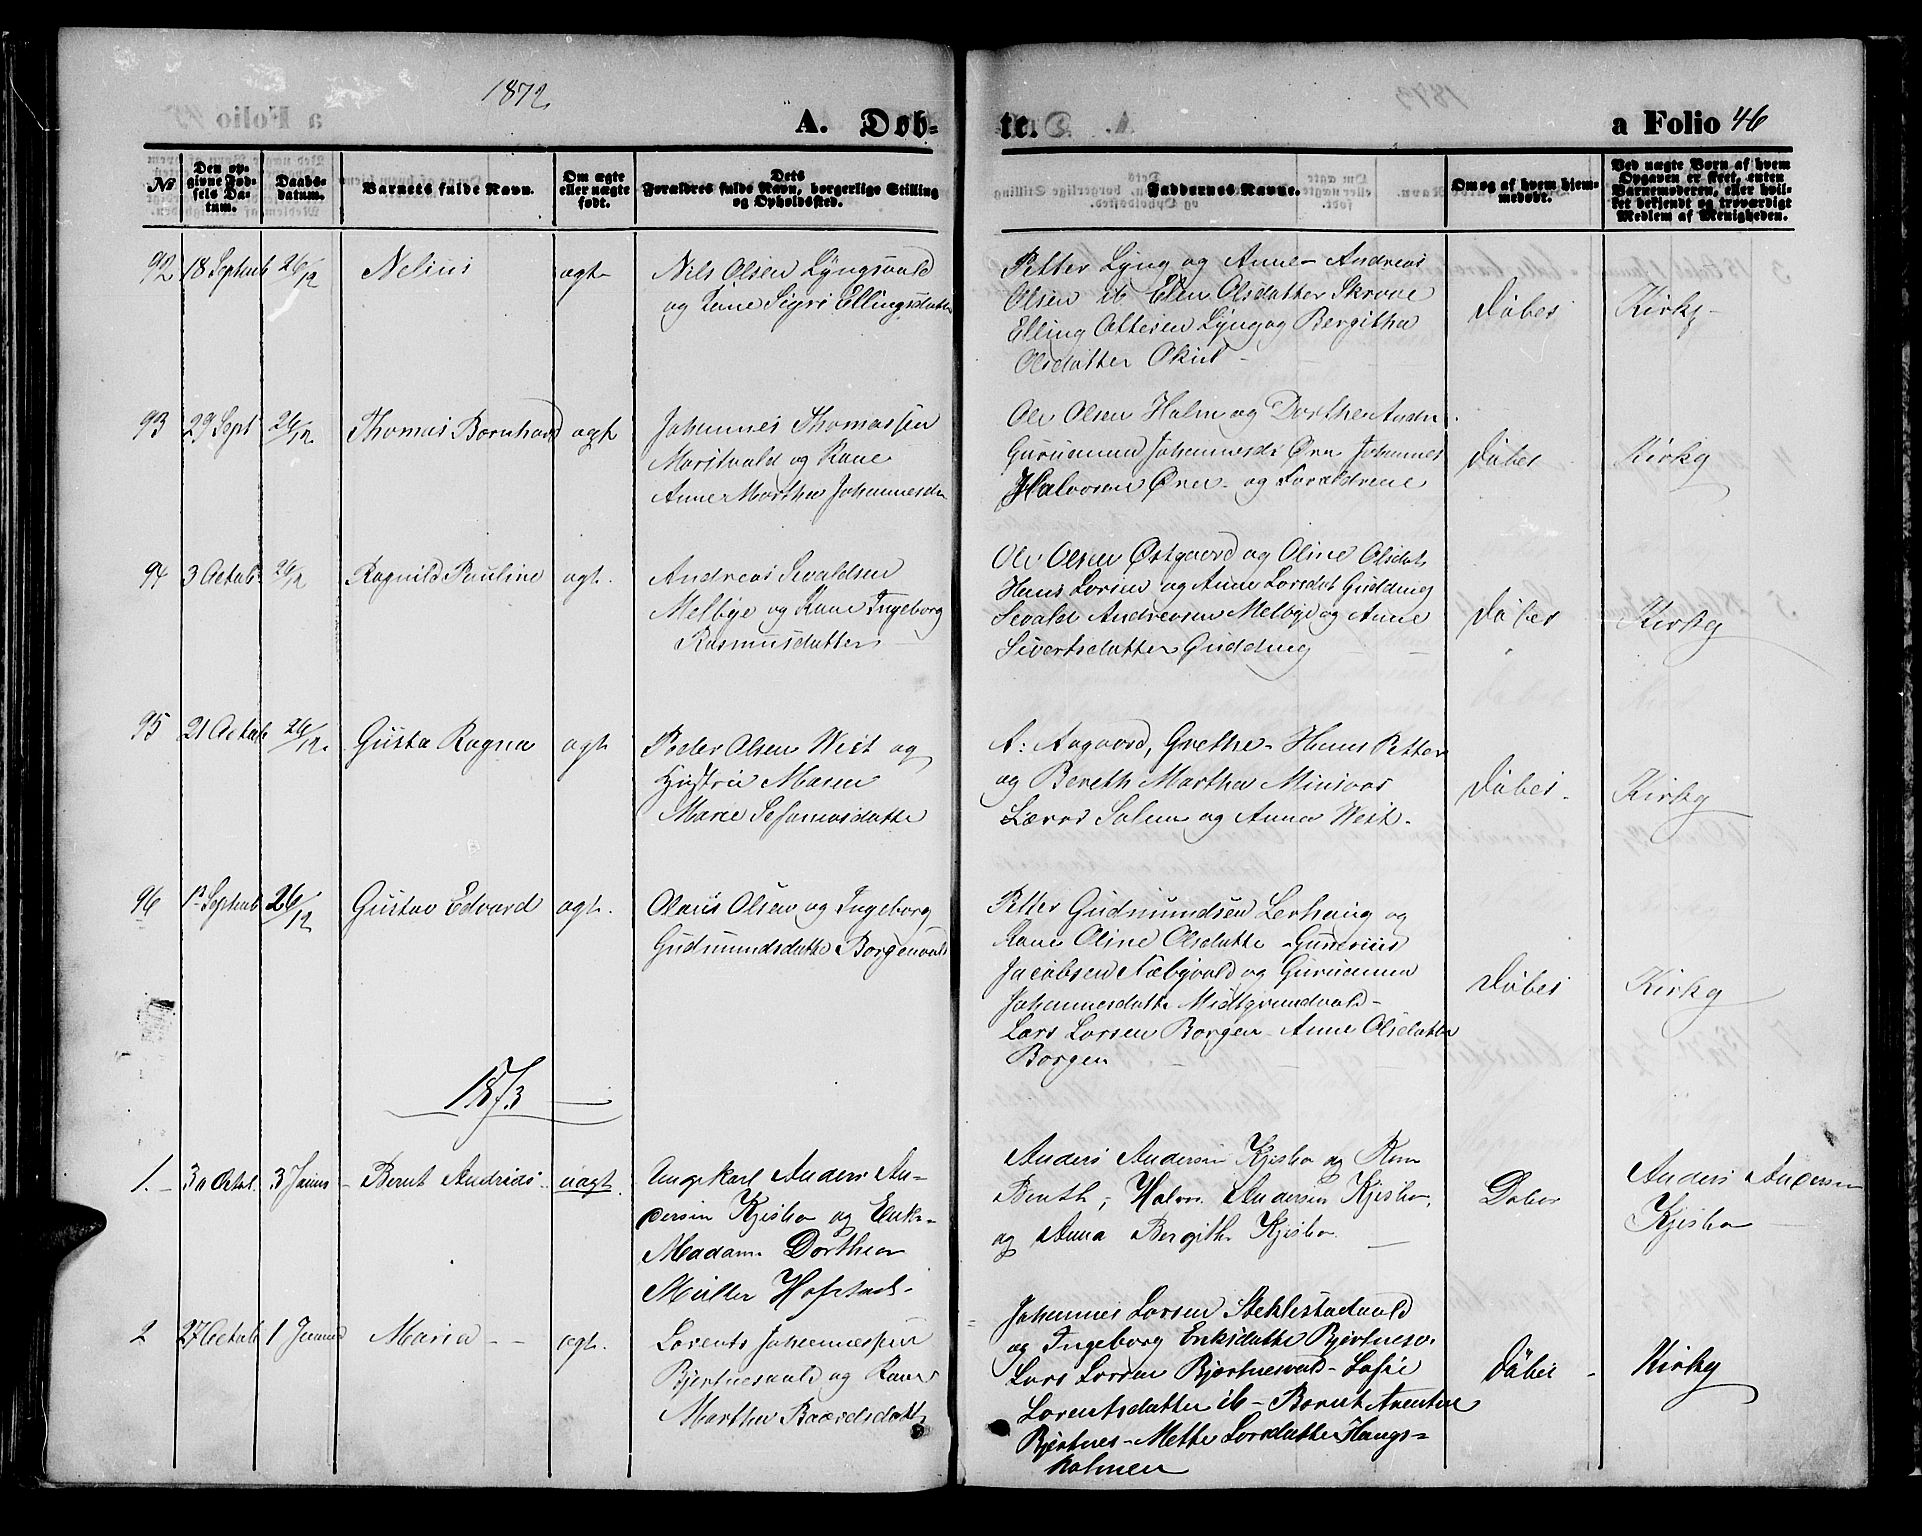 1872
A. Døb-
te.
a Folio 46
№
Den op-
givne Fød-
sels Da-
tum.
Daabs-
datum.
Barnets fulde Navn.
Om ægte
eller uægte
født.
Dets
Forældres fulde Navn, borgerlige Stilling
og Opholdssted.
Faddernes Navne.
Om og af hvem hjem-
medøbt.
Ved uægte Børn af hvem
Opgaven er skeet, enten
Barnemoderen, eller hvil-
ket bekjendt og troværdigt
Medlem af Menigheden.
92 18 Septemb 26/12 Nelius ægt
Nils Olsen Lyngsvald
og Kone Sigri Ellingsdatter
Petter Lyng og Anne - Andreas
Olsen ib Elen Olsdatter Skrove
Elling Ottersen Lyng og Bergitha
Olsdatter
Døbes Kirke
93 29 Sept 26/12 Thomas Bernhard ægt
Johannes Thomassen
Maritvald og Kone
Anne Martha Johannesda
Ole Olsen Halm og Dorthe Andr.
Guruanna Johannesd: Øren Johannes
Halvorsen Øren og Forældrene
Døbes Kirke
94 3 Octob 26/12 Ragnild Pauline ægt.
Andreas Sevaldsen
Melbye og Kone Ingeborg
Rasmusdatter
Ole Olsen Østgaard og Oline Olsdat
Hans Larsen og Anne Larsdat Gudding
Sevald Andreasen Melbye og Anne
Sivertsdatter Gudding
Døbes Kirke
95 21 Octob 26/12 Gusta Ragna ægt.
Peder Olsen West og
Hustru Maren
Marie
A: Aagaard, Grethe - Hans Petter
og Bereth Martha Minsaas
Lærer Salem og Anna West.
Døbes Kirke
96 13 Septemb 26/12 Gustav Edvard ægt.
Olaus Olsen og Ingeborg
Gudmundsdatte Borgenvald
Petter Gudmundsen Lerhaug og
Kone Oline Olsdatte
Jacobsen Næbyvald og Guruanna
Johannesdatte Midtgrundvald -
Lars Larsen Borgen - Anne Olsdatter
Borgen
Døbes Kirke
1873
1. 30 Octob. 3 Januar Bernt Andreas uægt.
Ungekarl Anders An-
dersen Kjesbo og Enke-
Madam Dorthea
Müller Hofstad.
Anders Andersen Kjesbo og Kone
Bereth, Halvor Andersen Kjesbo,
og Anna Bergithe Kjesbo.
Døbes
Anders Andersen
Kjesbo
2 27 Octob 1 Januar Maria ægt.
Lorents Johannessen
Bjertnesvald og Kone
Martha Baardsdatt
Johannes Larsen Stiklestadvald
og Ingeborg Eriksdatte Bjertnesv.
Lars Larsen Bjertnesvald - Sofie
Lorentsdatter ib - Bernt Arentsen
Bjertnes - Mette Larsdatter Haugs-
holmen
Døbes Kirke